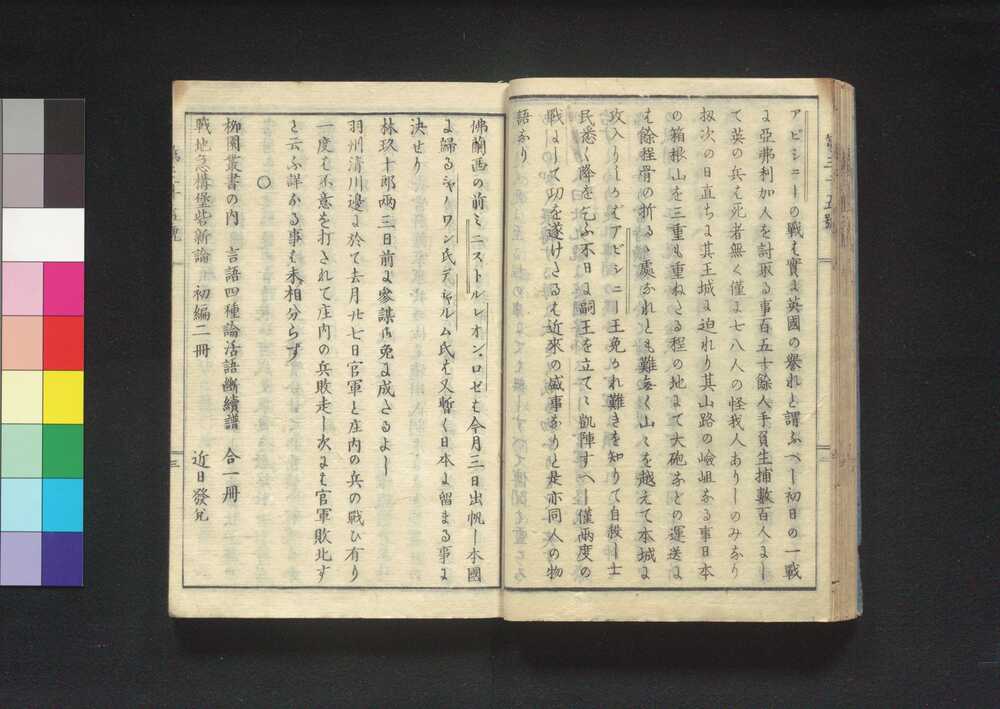 アビシニーの戦は實に英國の譽れと謂ふべし初日の一戦
に亞弗利加人を討取る事百五十餘人手負生捕數百人にし
て英の兵は死者無く僅に七八人の怪我人ありしのみなり
扨次の日直ちに其王城に迫れり其山路の嶮岨なる事日本
の箱根山を三重も重ねたる程の地にて大砲などの運送は
も餘程骨の折るゝ處なれとも難無く山々を越えて本城に
攻入りしかばアビシニー王免かれ難きを知りて自殺し士
民悉く降を乞ふ不日に嗣王を立てゝ凱陣すへし僅兩度の
戦にして功を遂けたるは近來の盛事なりと是亦同人の物
語なり
第三十五號
三
佛蘭西の前ミニストルレオン、ロセは今月三日出帆し本國
に歸るシャノワン氏デシャルム氏は又暫く日本に留まる事に
決せり
林玖十郎兩三日前に參謀御免に成たるよし
羽州清川邊に於て去月廿七日官軍と庄内の兵の戦ひ有り
一度は不意を打されて庄内の兵敗走し次には官軍敗北す
と云ふ詳かる事は未相分らず
〇
柳園叢書の内 言語四種論活語斷續譜 合一冊
戰地急搆堡砦新論 初編二冊 近日發兌